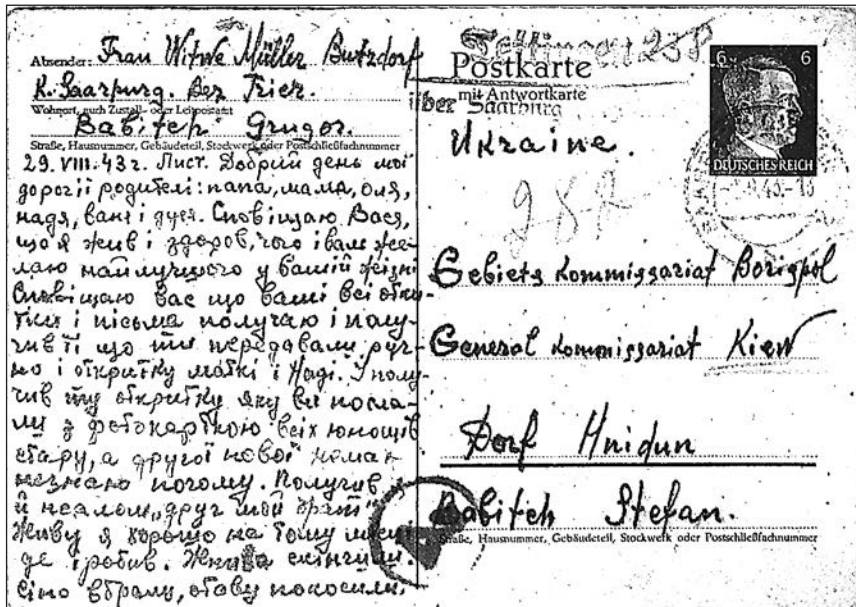 Absender: Frau Witwe Müller Butzdorf
K. Saarpurg. Bez Trier.
Wohnort, auch Zustell- oder Leitpostamt
Babitch Grugor.
Straße, Hausnummer, Gebäudeteil, Stockwerk oder Postschließfachnummer
29.VIII.43 г. Лист. Добрий день мої
дорогії родителі: папа, мама, оля,
надя, ваня і дуся. Сповіщаю Вас,
що я жив і здоров, чого і вам же-
лаю найлучшого у вашій жізні
Сповіщаю вас що ваші всі откри-
тки і пісьма получаю і полу-
чив ті що ти передавали руч-
но і откритку маткі і Наді. І полу-
чив ту откритку яку ви посла-
ли з фотокарткою всіх юношів
стару, а другої нової нема
незнаю почому. Получив
й псалом „друг мой брат"
Живу я хорошо на тому місці
де і робив. Жнива скінчили.
сіно вбрали, отаву покосили.
Postkarte
mit Antwortkarte
über Saarburg
6 6
DEUTSCHES REICH
Ukraine.
Gebiets Kommissariat Borispol
General Kommissariat Kiew
Dorf Hnidun
Babitch Stefan.
Straße, Hausnummer, Gebäudeteil, Stockwerk oder Postschließfachnummer